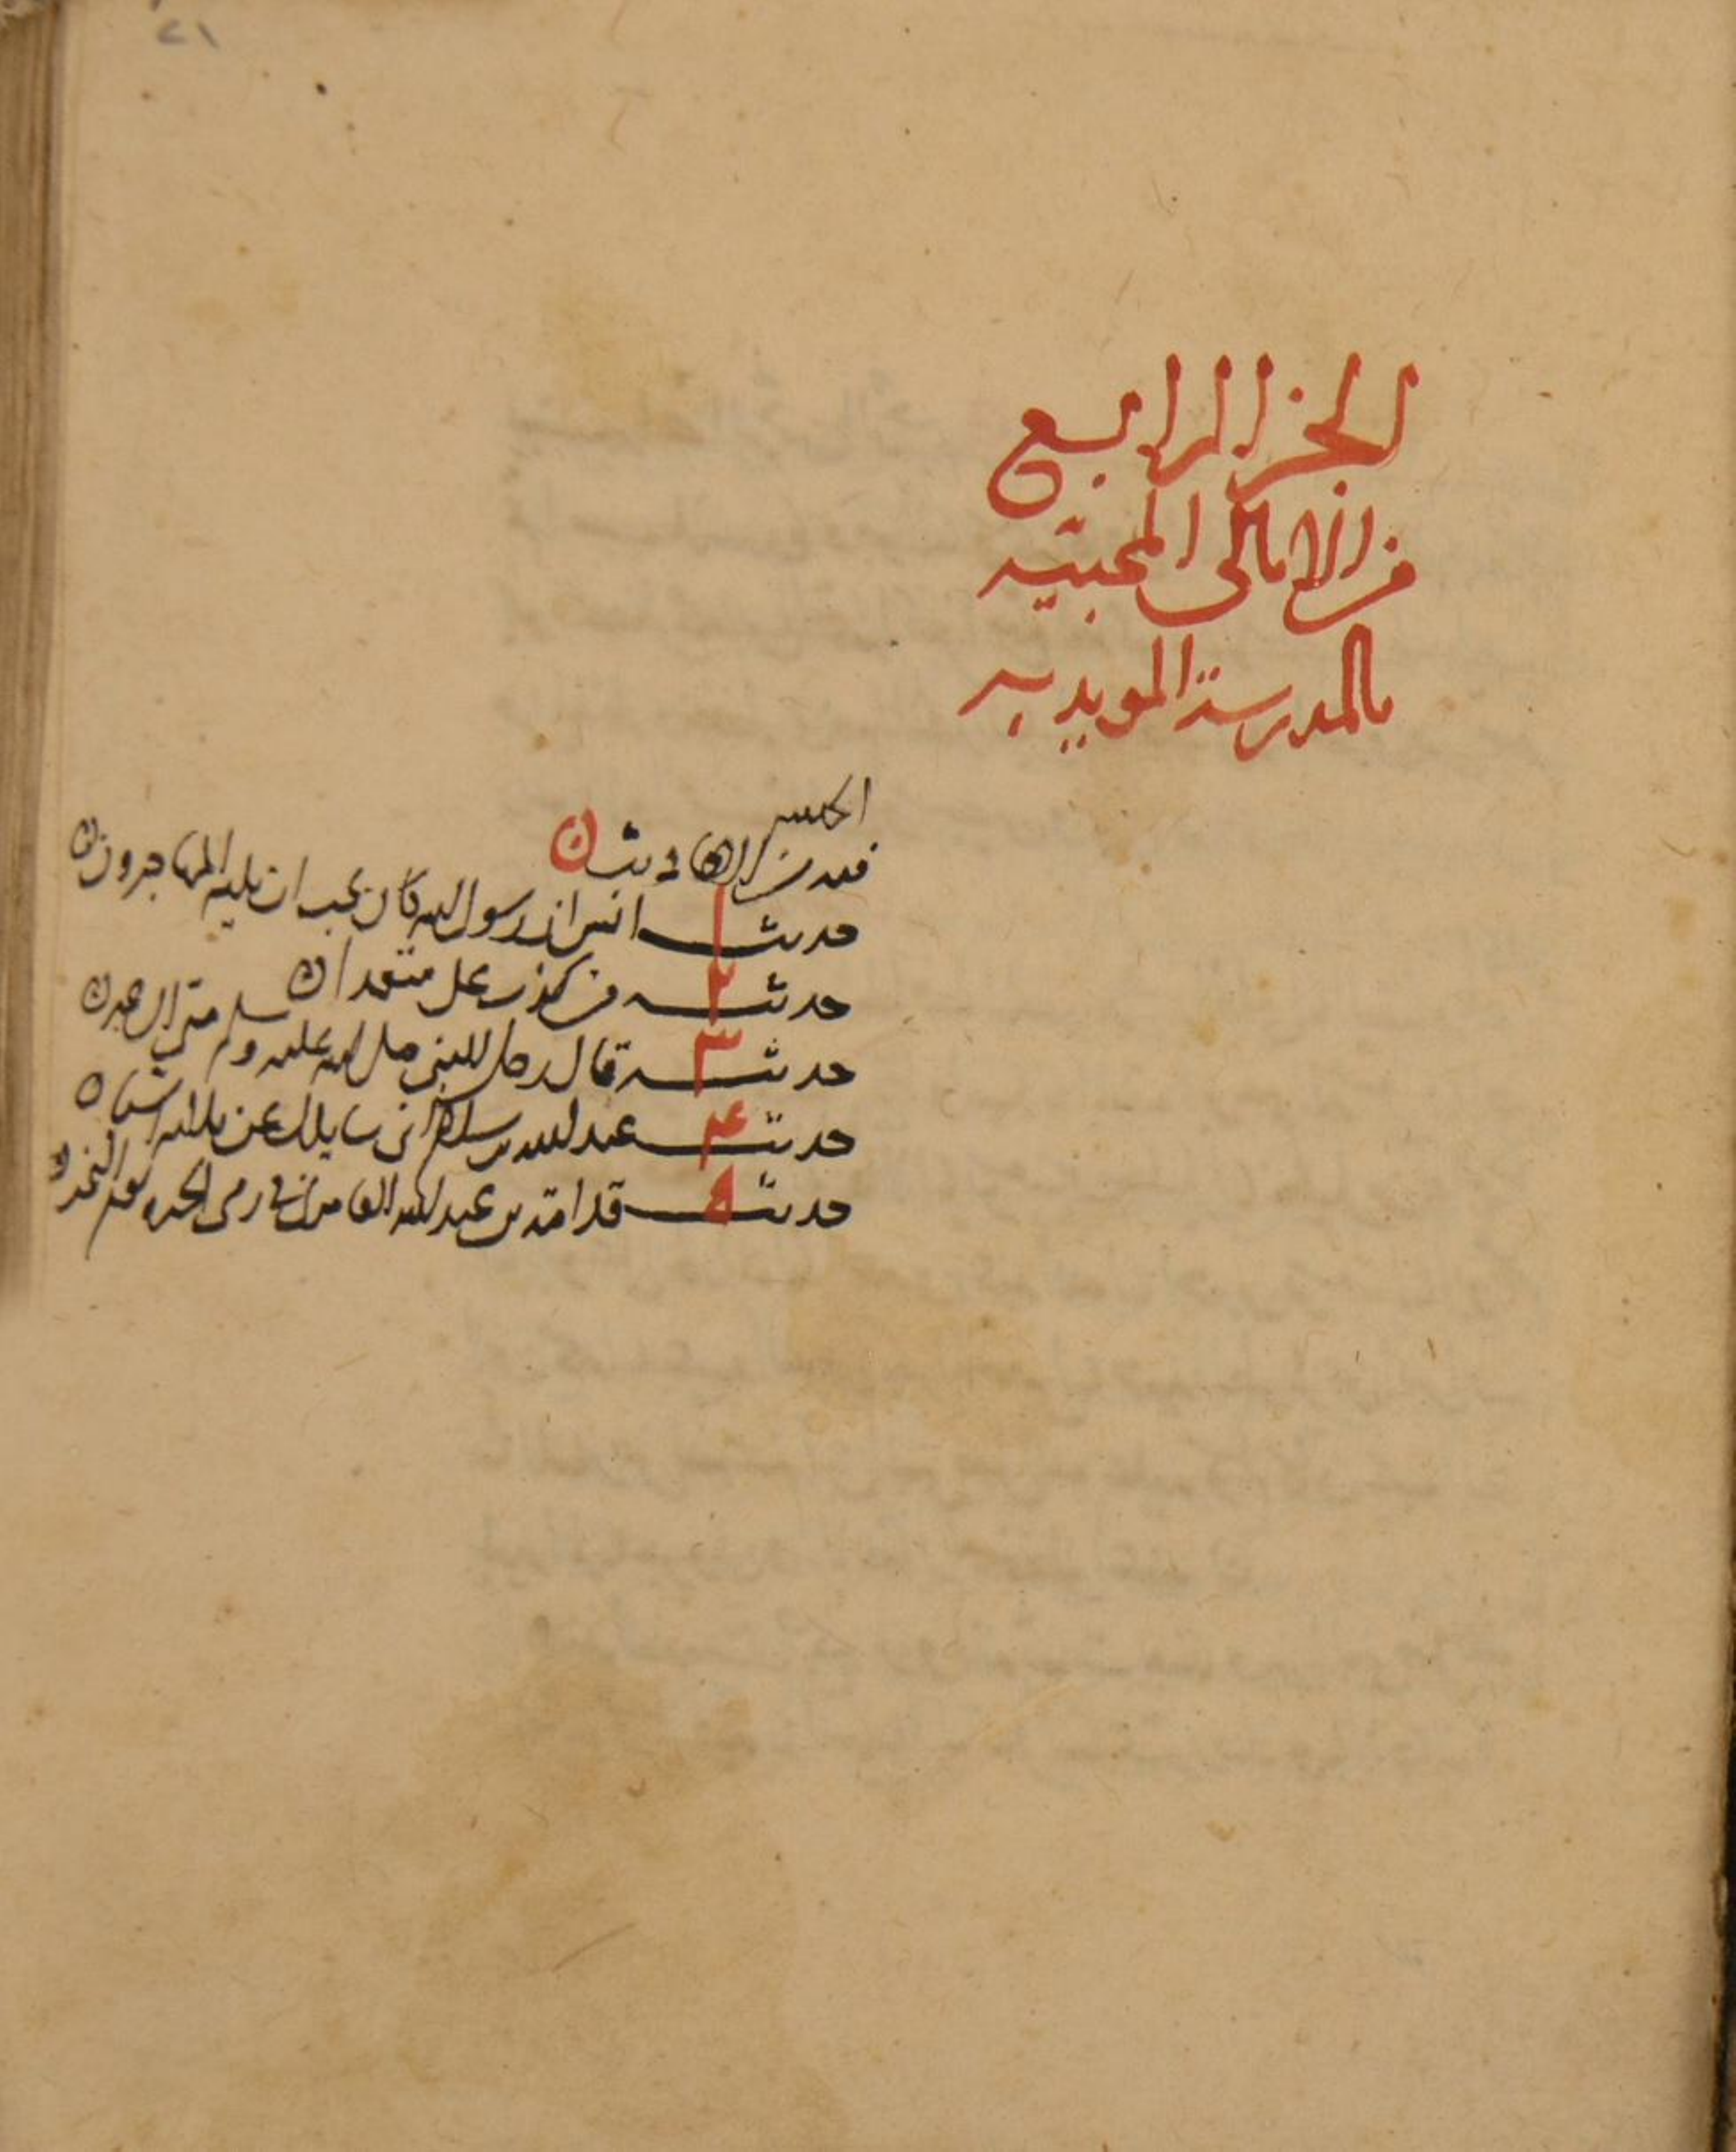 ٢١
الجز الرابع
من الامالى المحبيّه
بالمدرسة المويديه
فيه من الاحاديث
حديث ١ انس ان رسول الله كان يحب ان يليه المهاجرون
حديث ٢ من كذب على متعمدا
حديث ٣ قال رجل للنبى صلى الله عليه وسلم متى
حديث ٤ عبد الله بن سلام انى سايلك عن ثلاثه اشيا
حديث ٥ قدامة بن عبد الله رمى الجمره يوم النحر